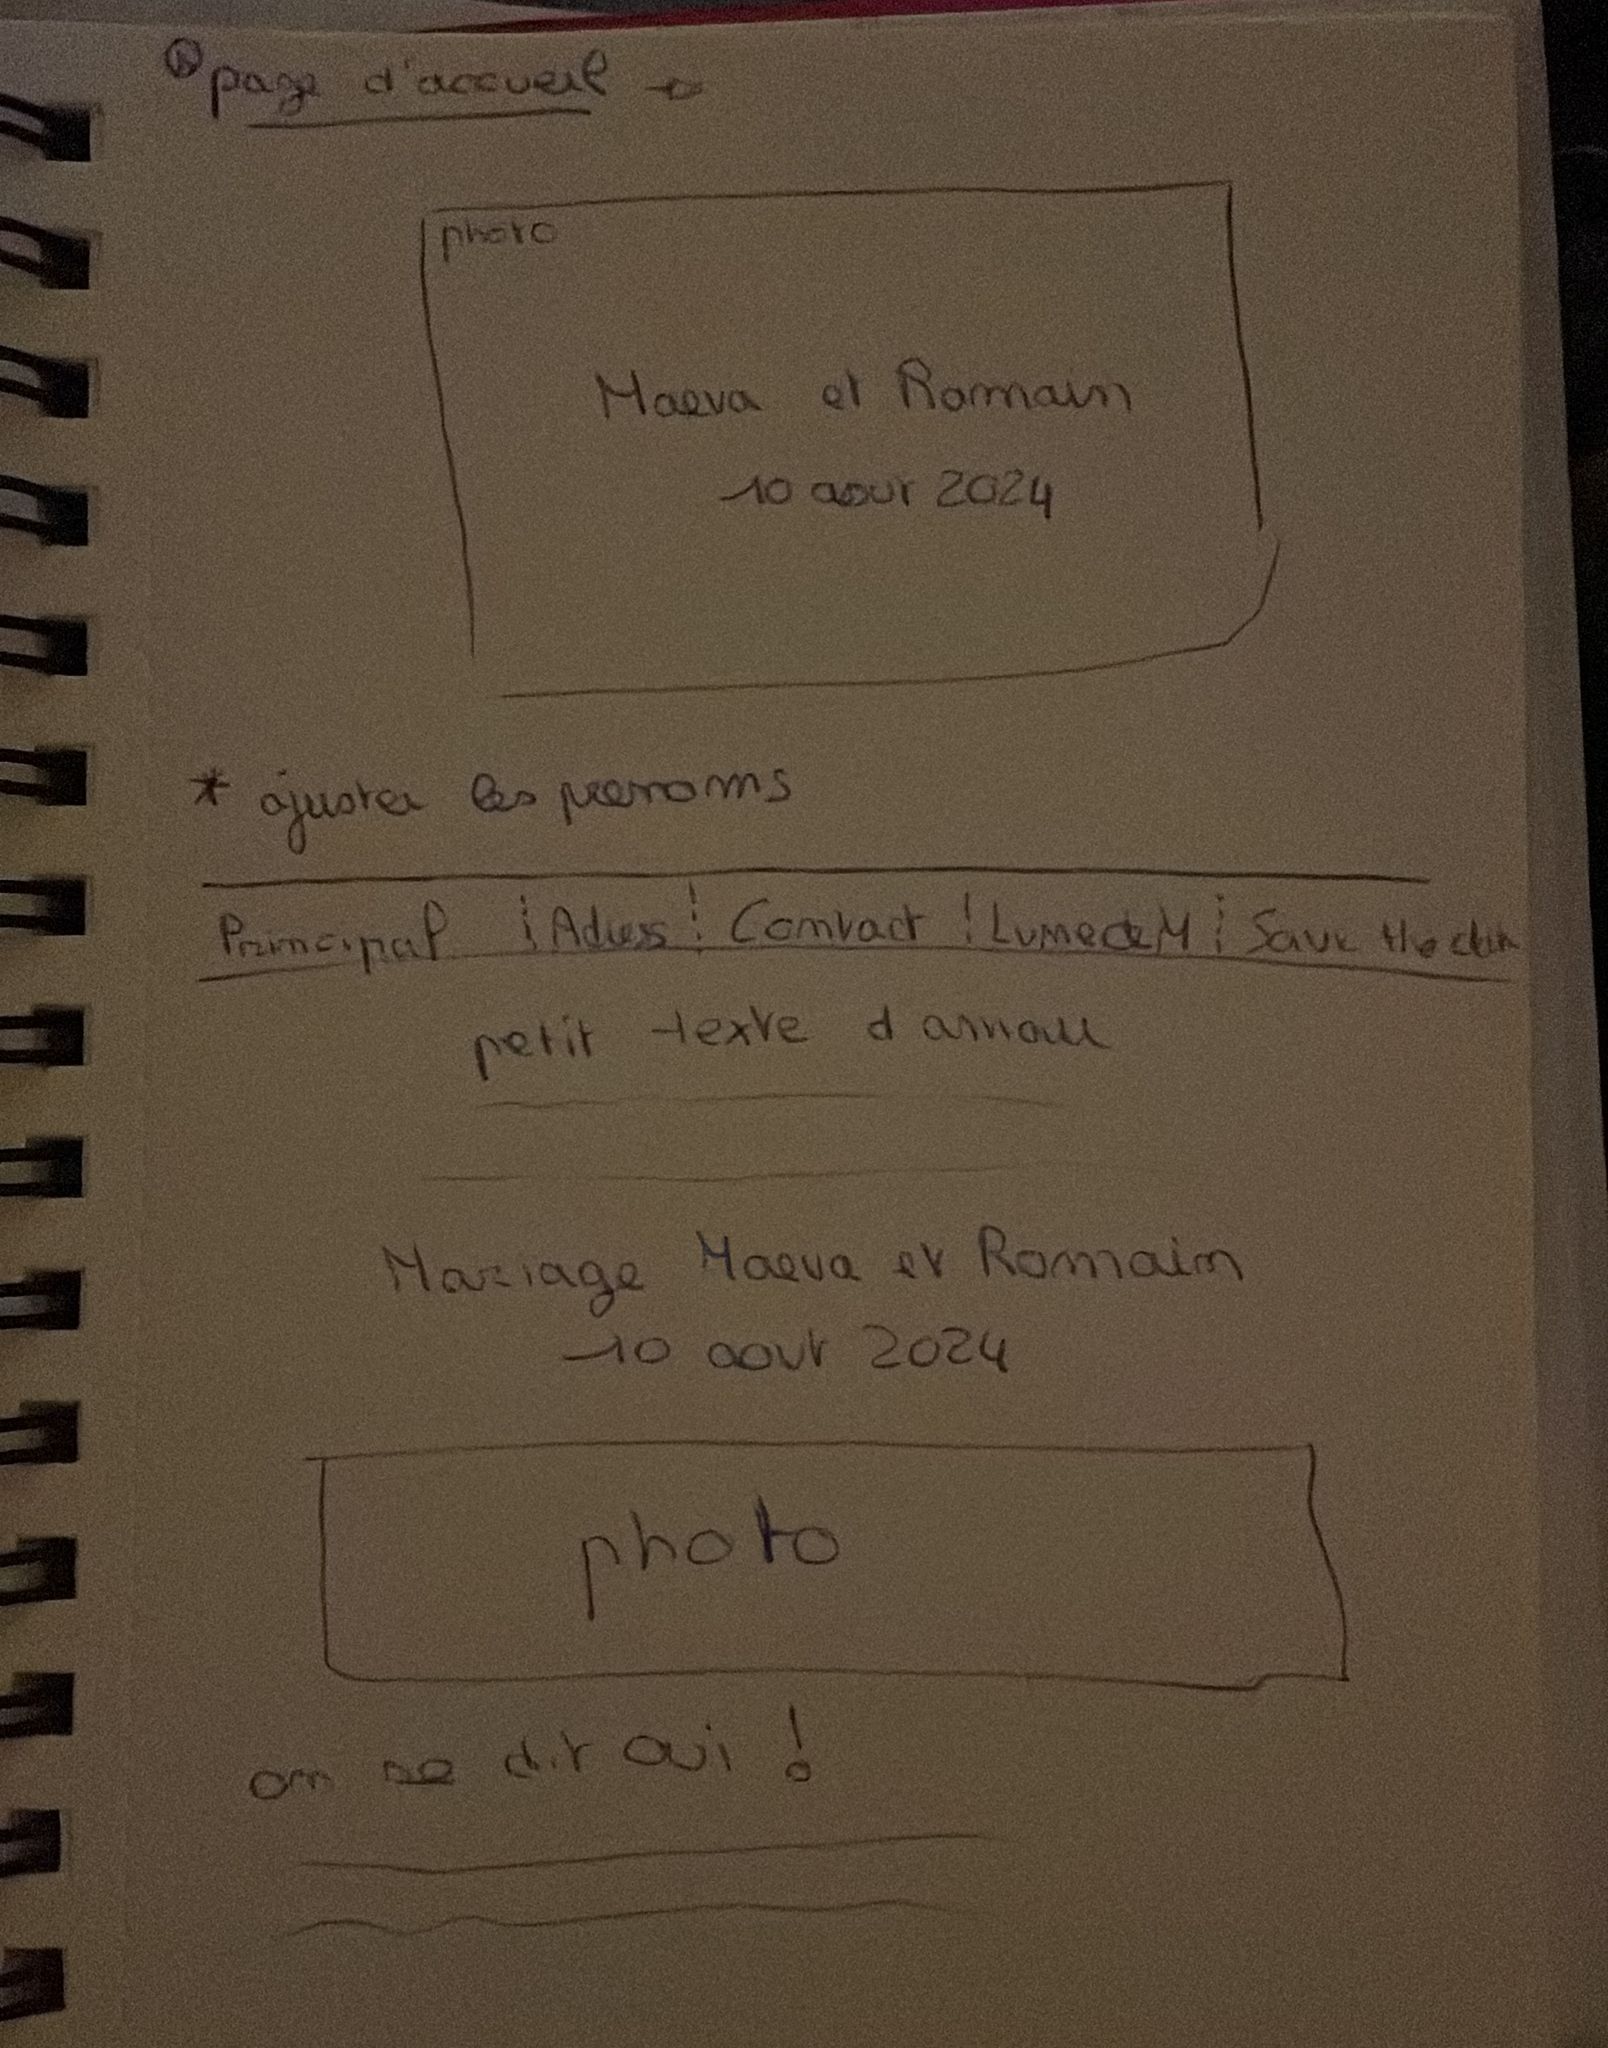 page d'accueil →
photo
Maeva et Romain
10 aout 2024
* ajuster les prenoms
Principal Adress Contact LunedeM Save the date
petit texte d amour
Mariage Maeva et Romain
10 aout 2024
photo
on se dit oui !